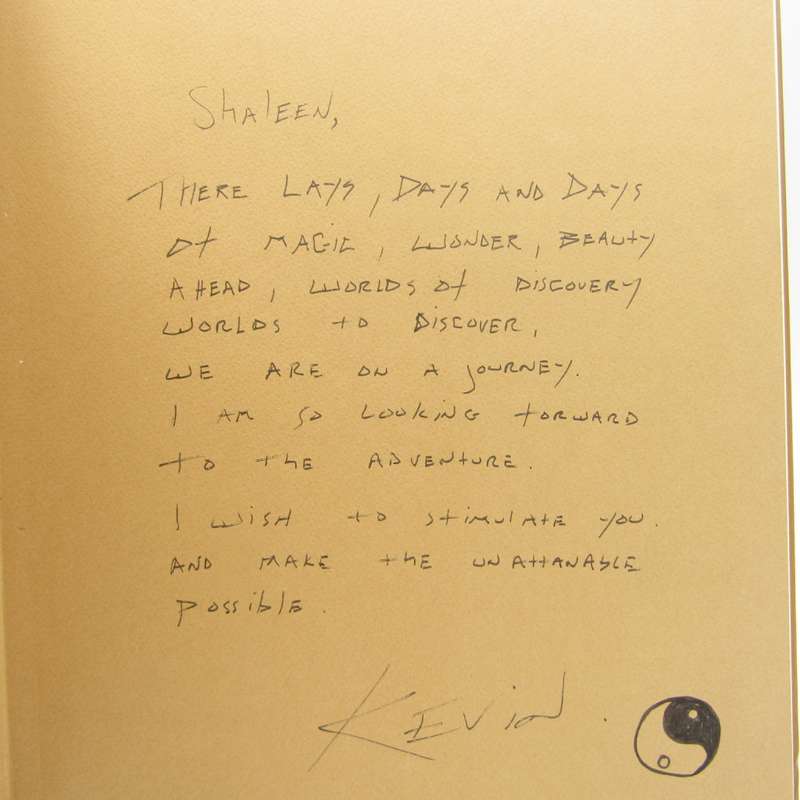 Shaleen,
THERE LAYS, DAYS AND DAYS
Of MAGIC, WONDER, BEAUTY
AHEAD, WORLDS Of DISCOVERY
WORLDS to DISCOVER,
WE ARE ON A JOURNEY.
I AM SO LOOKING FORWARD
to the ADVENTURE.
I WISH to stimulate you.
AND MAKE the UNATTANABLE
possible.
KEVIN.